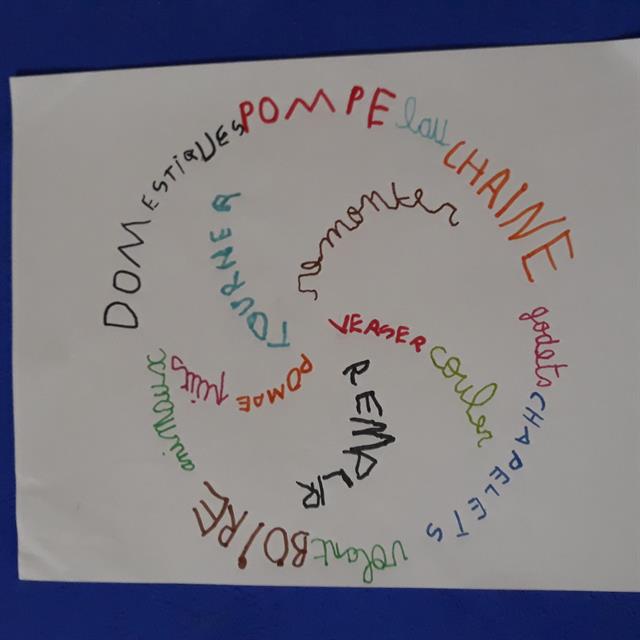 POMPE
l'au
CHAINE
godets
CHAPELETS
volant
BOIRE
animaux
DOMESTIQUES
remonter
TOURNER
VERSER
couler
REMPLR
POMPE
puits